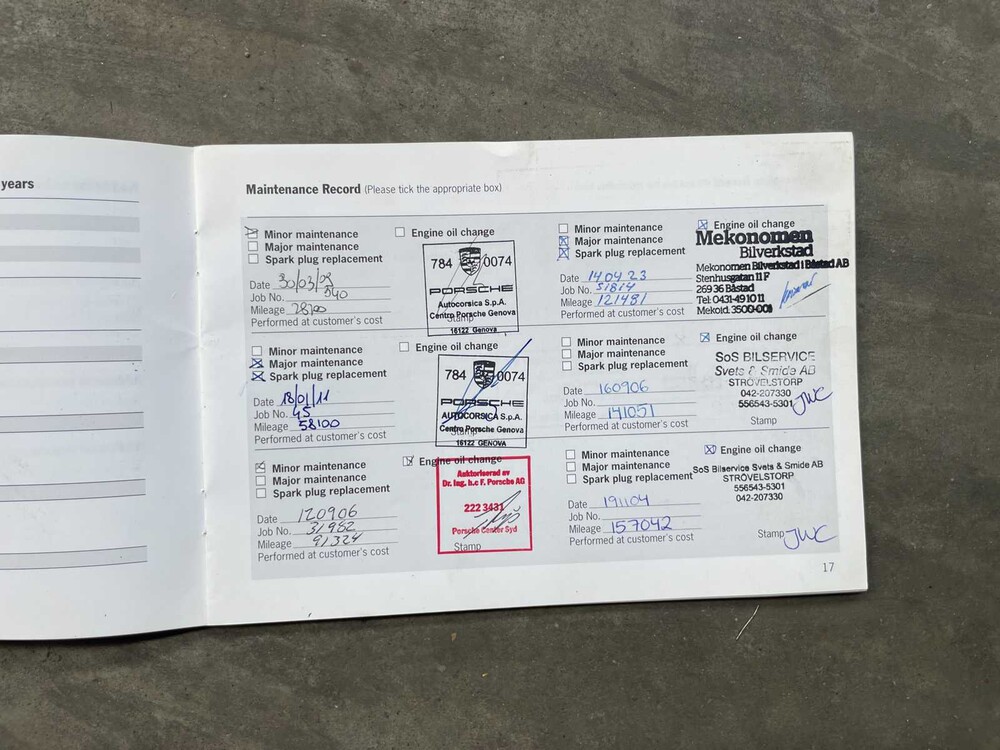 years
Maintenance Record (Please tick the appropriate box)
Minor maintenance
Major maintenance
Spark plug replacement
Engine oil change
Date 30/03/
Job No. 540
Mileage 28100
Performed at customer's cost
784 0074
PORSCHE
Autocorsica S.p.A.
Centro Porsche Genova
Stamp
16122 Genova
Minor maintenance
Major maintenance
Spark plug replacement
Engine oil change
Date 18/01/11
Job No. 45
Mileage 58100
Performed at customer's cost
784 0074
PORSCHE
AUTOCORSICA S.p.A.
Centro Porsche Genova
Stamp
16122 GENOVA
Minor maintenance
Major maintenance
Spark plug replacement
Engine oil change
Date 120906
Job No. 31982
Mileage 91324
Performed at customer's cost
Auktoriserad av
Dr. Ing. h.c F. Porsche AG
222 3431
Porsche Center Syd
Stamp
Minor maintenance
Major maintenance
Spark plug replacement
Engine oil change
Date 140423
Job No. 51814
Mileage 121481
Performed at customer's cost
Mekonomen
Bilverkstad
Mekonomen Bilverkstad i Båstad AB
Stenhusgatan 11 F
269 36 Båstad
Tel: 0431-491011
Mekoid. 3500-001
Minor maintenance
Major maintenance
Spark plug replacement
Engine oil change
Date 160906
Job No.
Mileage 141051
Performed at customer's cost
SoS BILSERVICE
Svets & Smide AB
STRÖVELSTORP
042-207330
556543-5301
JWC
Stamp
Minor maintenance
Major maintenance
Spark plug replacement
Engine oil change
Date 191104
Job No.
Mileage 157042
Performed at customer's cost
SoS Bilservice Svets & Smide AB
STRÖVELSTORP
556543-5301
042-207330
Stamp JWC
17